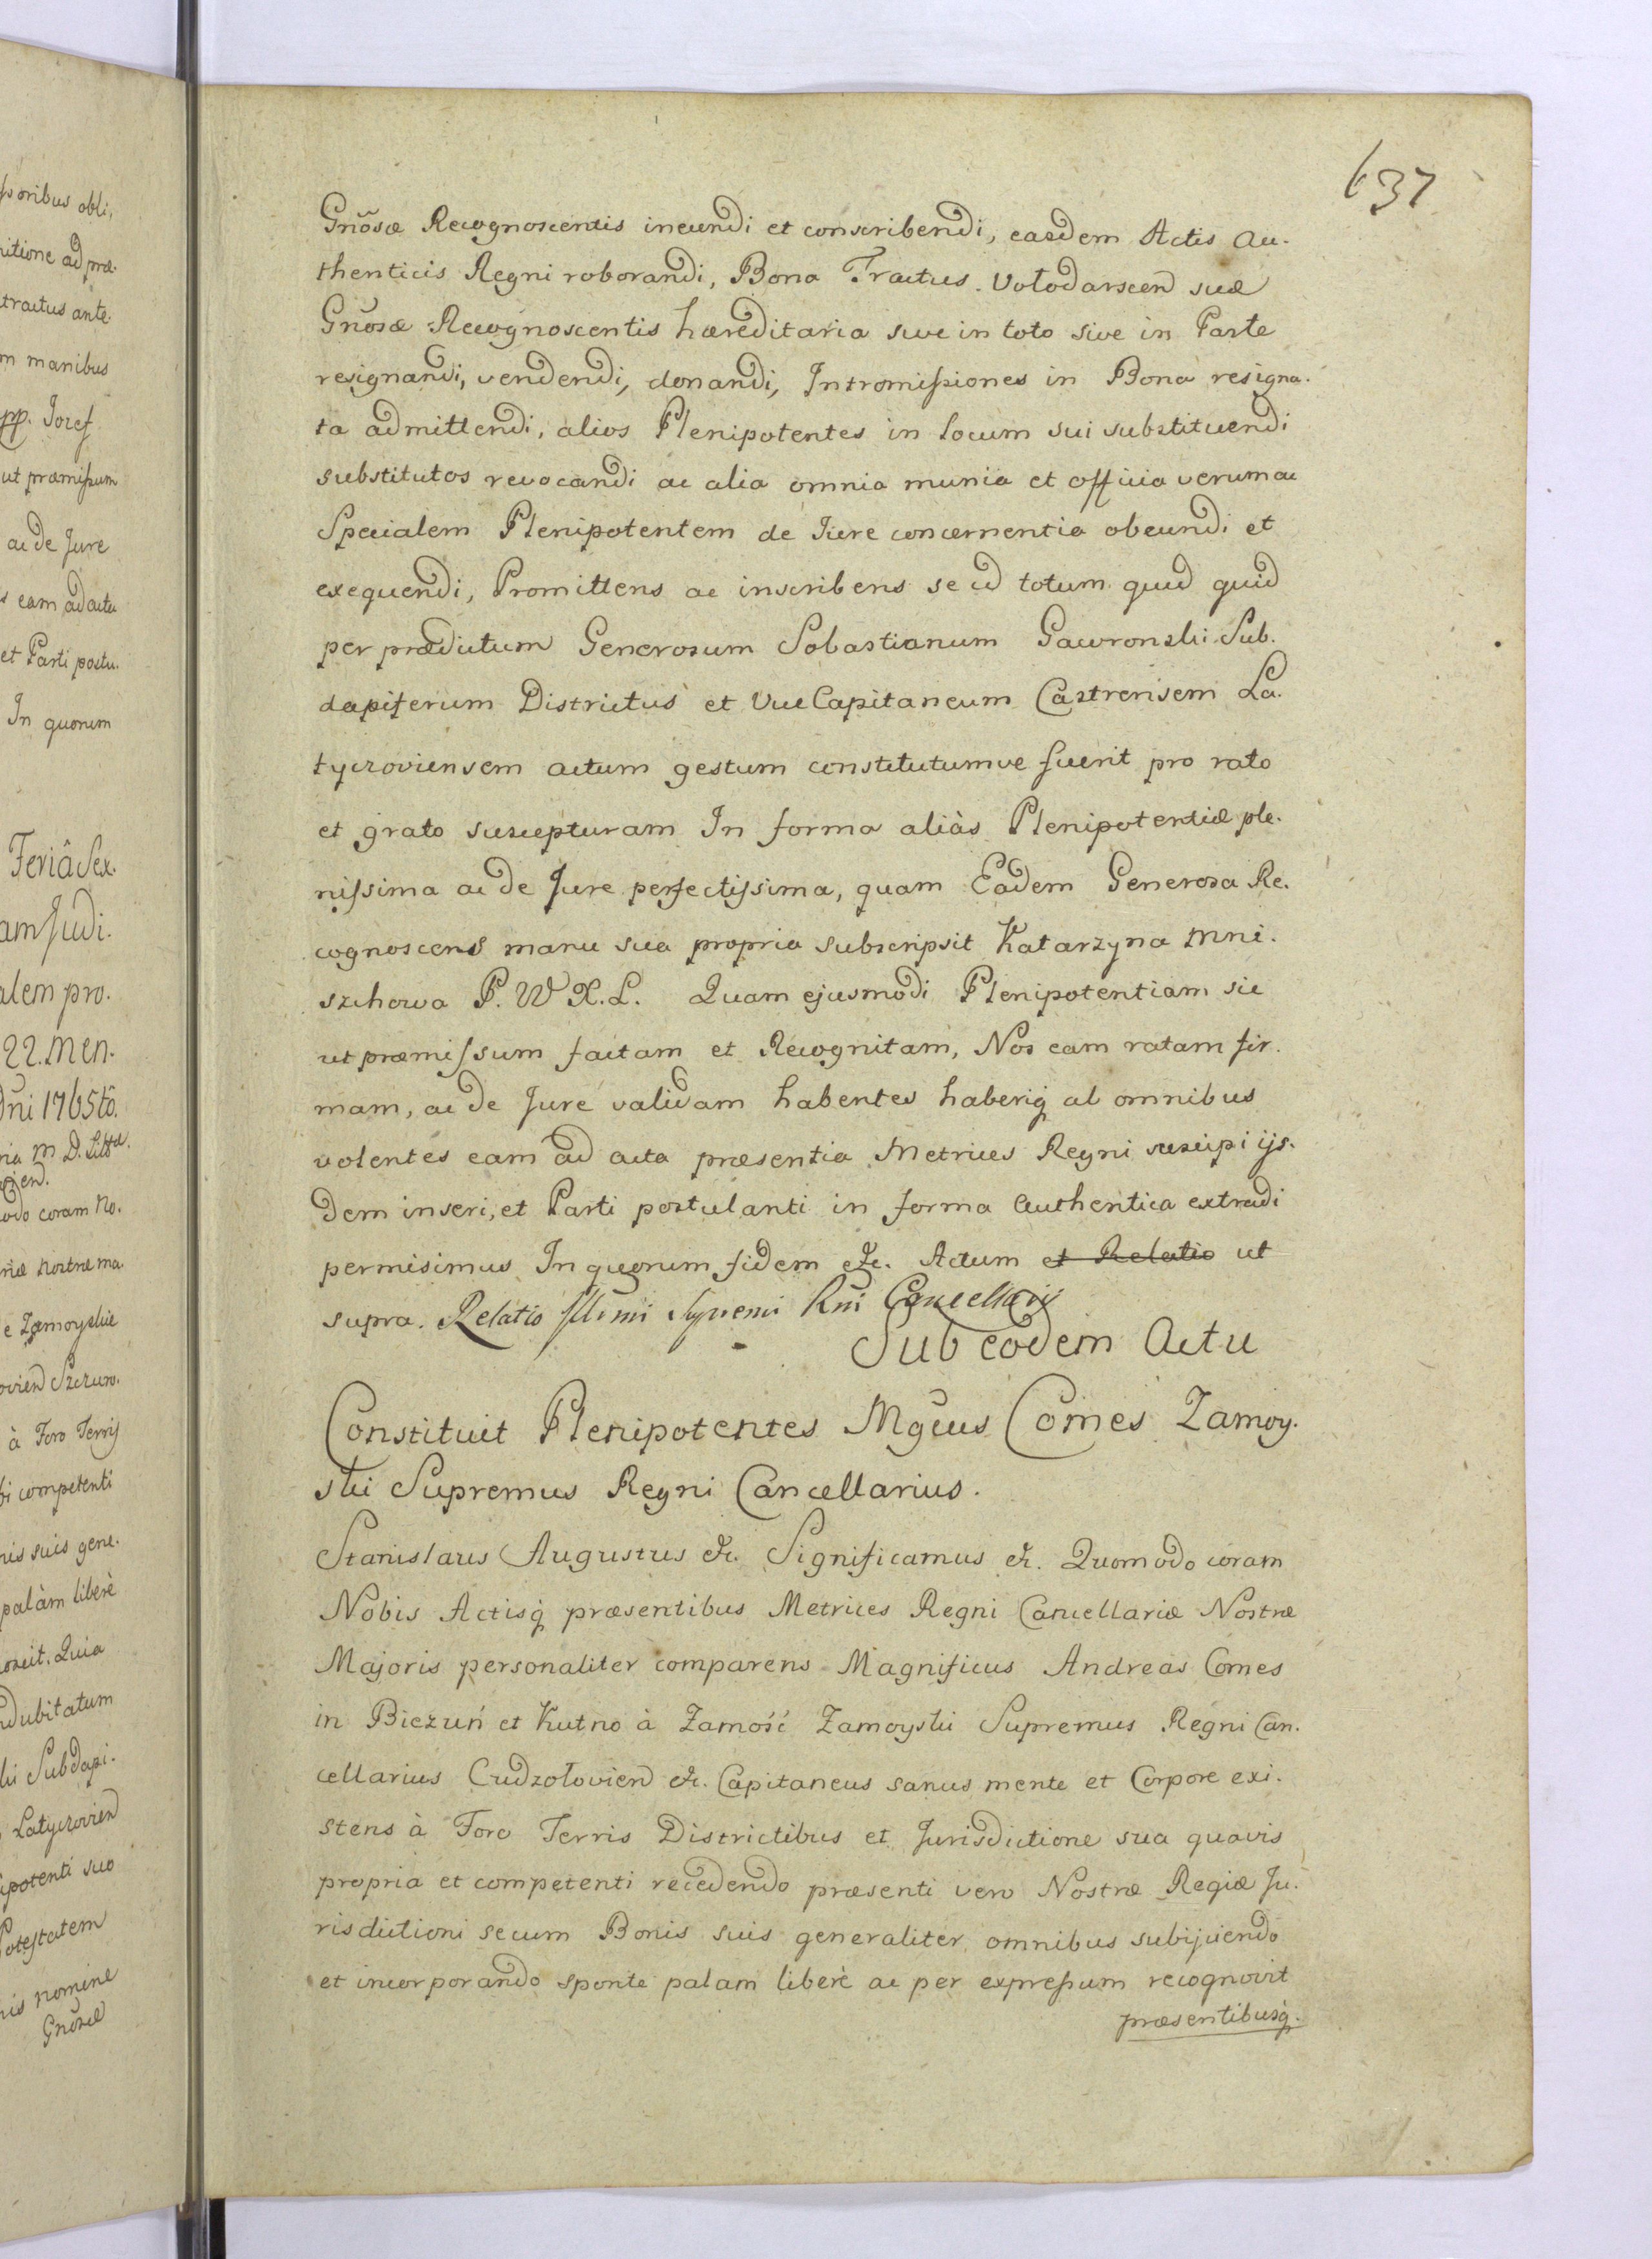 637
Gnõsæ Recognoscentis ineundi et conscribendi, easdem Actis Au-
thenticis Regni roborandi, Bona Tractus Volodarscen suæ
Gnõsæ Recognoscentis hæreditaria sive in toto sive in Parte
resignandi, vendendi, donandi, Intromissiones in Bona resigna-
ta admittendi, alios Plenipotentes in locum sui substituendi
substitutos revocandi ac alia omnia munia et officia verum ac
Specialem Plenipotentem de Jure concernentia obeundi et
exequendi, Promittens ac inscribens se id totum quid quid
per prædictum Generosum Sobastianum Gawronski Sub-
dapiferum Districtus et ViceCapitaneum Castrensem La-
tyczoviensem actum gestum constitutumve fuerit pro rato
et grato suscepturam In forma aliàs Plenipotentiæ ple-
nissima ac de Jure perfectissima, quam Eadem Generosa Re-
cognoscens manu sua propria subscripsit Katarzyna Mni-
szchowa P. W X. L. Quam ejusmodi Plenipotentiam sic
ut præmissum factam et Recognitam, Nos eam ratam fir-
mam, ac de Jure validam habentes haberiq ab omnibus
volentes eam ad acta præsentia Metrices Regni suscipi ijs-
dem inseri, et Parti postulanti in forma authentica extradi
permisimus In quorum fidem etc. Actum et Relatio ut
supra. Relatio Illmi Supremi Rni Cancellarij
Sub eodem Actu
Constituit Plenipotentes Mgcus Comes Zamoy-
ski Supremus Regni Cancellarius.
Stanislaus Augustus etc. Significamus etc. Quomodo coram
Nobis Actisq præsentibus Metrices Regni Cancellariæ Nostræ
Majoris personaliter comparens Magnificus Andreas Comes
in Biezuń et Kutno à Zamość Zamoyski Supremus Regni Can-
cellarius Cudzołovien etc. Capitaneus sanus mente et Corpore exi-
stens à Foro Terris Districtibus et Jurisdictione sua quavis
propria et competenti recedendo præsenti vero Nostræ Regiæ Ju-
risdictioni secum Bonis suis generaliter omnibus subijciendo
et incorporando sponte palam liberè ac per expressum recognovit
præsentibusq.